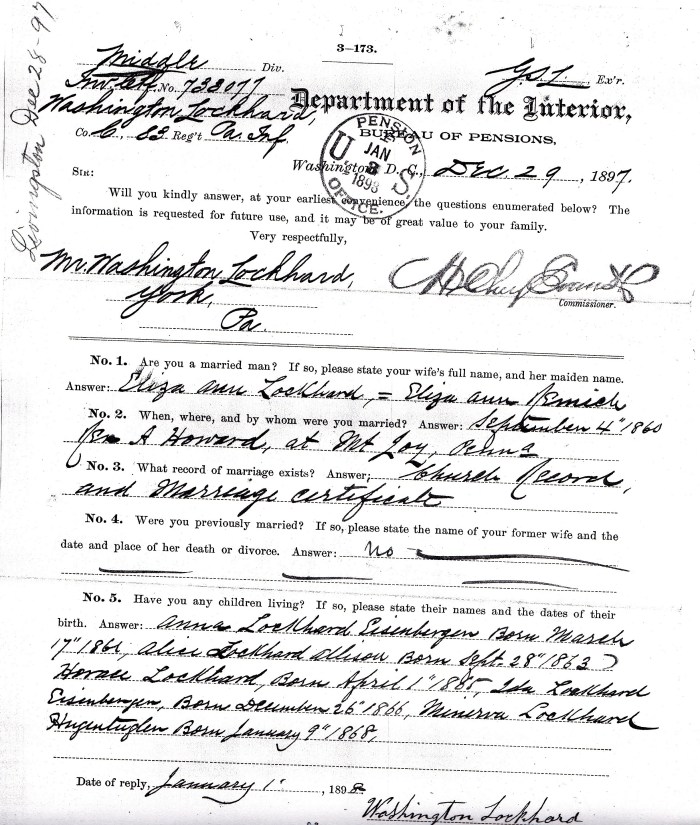 Livingston Dec 28-97
3—173.
Middle Div.
G.S.L. Ex'r.
Inv. Ctf. No. 733077
Washington Lockhard,
Department of the Interior,
Co. C, 83 Reg't Pa. Inf
BUREAU OF PENSIONS,
Washington, D. C., Dec. 29, 1897.
U. S. PENSION OFFICE.
JAN
3
1898
SIR:
Will you kindly answer, at your earliest convenience, the questions enumerated below? The
information is requested for future use, and it may be of great value to your family.
Very respectfully,
Mr. Washington Lockhard,
York,
Pa.
H Clay Evans
Commissioner.
No. 1. Are you a married man? If so, please state your wife's full name, and her maiden name.
Answer: Eliza ann Lockhard, = Eliza ann
No. 2. When, where, and by whom were you married? Answer: September 4" 1860
A Howard, at Mt Joy, Penna
No. 3. What record of marriage exists? Answer: Church Record,
and Marriage certificate
No. 4. Were you previously married? If so, please state the name of your former wife and the
date and place of her death or divorce. Answer: No
No. 5. Have you any children living? If so, please state their names and the dates of their
birth. Answer: Anna Lockhard Eisenberger Born March
17" 1861, Alice Lockhard Allison Born Sept. 28" 1863
Horace Lockhard, Born April 1" 1865, Ida Lockhard
Eisenberger, Born December 26" 1866, Minerva Lockhard
Hugentugler Born January 9" 1868,
Date of reply, January 1", 1898
Washington Lockhard